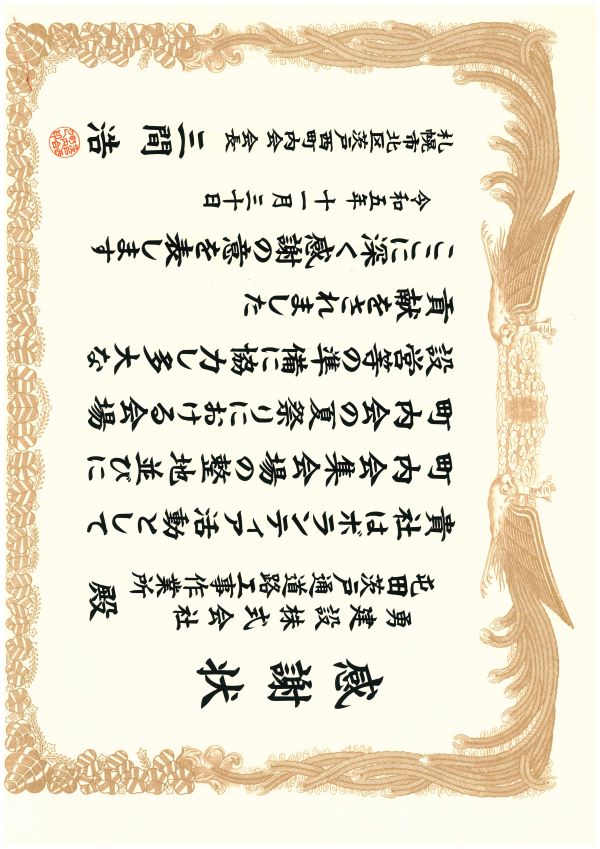 感謝状
勇建設株式会社
屯田茨戸通道路工事作業所 殿
貴社はボランティア活動として
町内会集会場の整地並びに
町内会の夏祭りにおける会場
設営等の準備に協力し多大な
貢献をされました
ここに深く感謝の意を表します
令和五年十一月三十日
札幌市北区茨戸西町内会会長
三間浩